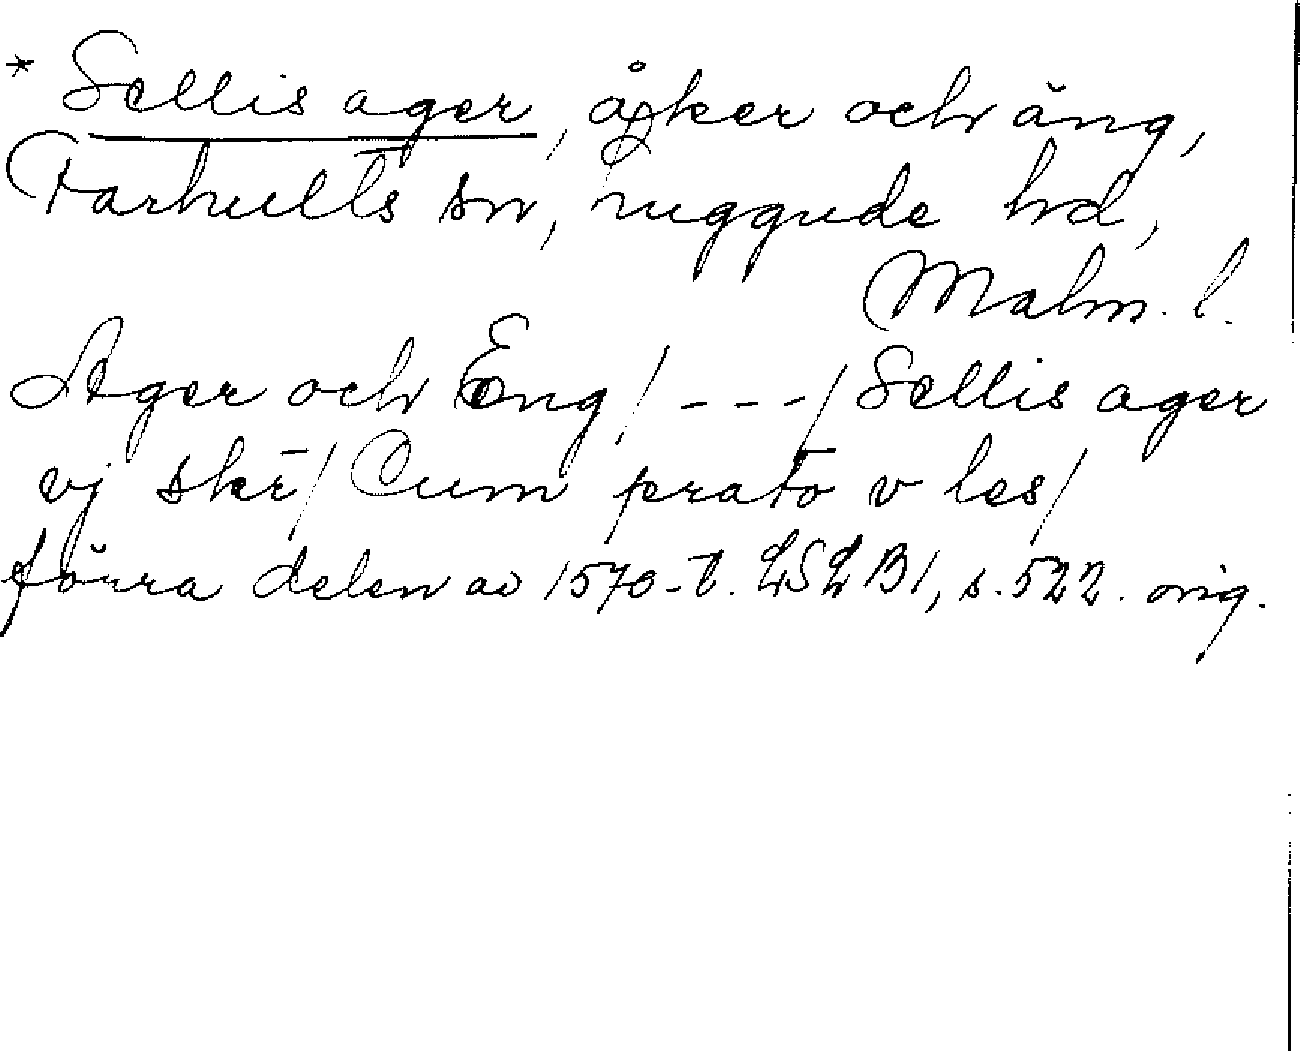 * Sellis ager, åker och äng,
Farhults sn, Luggude hd,
Malm. l.
Ager och Eng / - - - / Sellis ager
vj skr̄ / Cum prato v les /
förra delen av 1570-t. LSLB1, s. 522. orig.